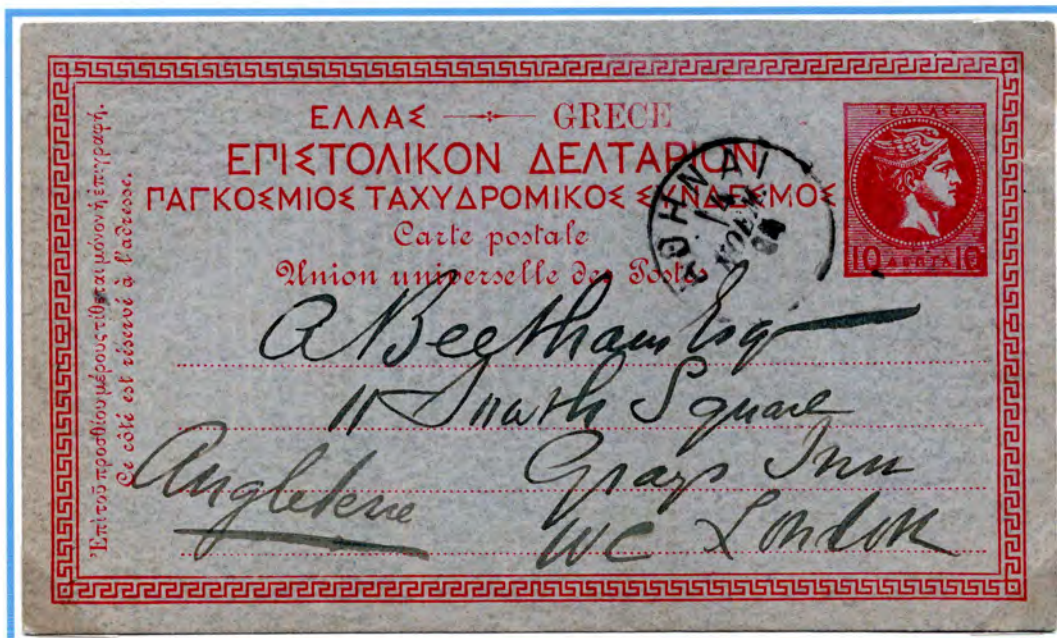 ΕΛΛΑΣ GRECE
ΕΠΙΣΤΟΛΙΚΟΝ ΔΕΛΤΑΡΙΟΝ
ΠΑΓΚΟΣΜΙΟΣ ΤΑΧΥΔΡΟΜΙΚΟΣ ΣΥΝΔΕΣΜΟΣ
Carte postale
Union universelle des Postes
Ἐπὶ τοῦ προσθίου μέρους τίθεται μόνον ἡ ἐπιγραφή.
Ce côté est réservé à l'adresse.
ΕΛΛΑΣ
10 ΛΕΠΤΑ 10
ΑΘΗΝΑΙ
A Beetham Esq
11 South Square
Grays Inn
WC London
Angleterre